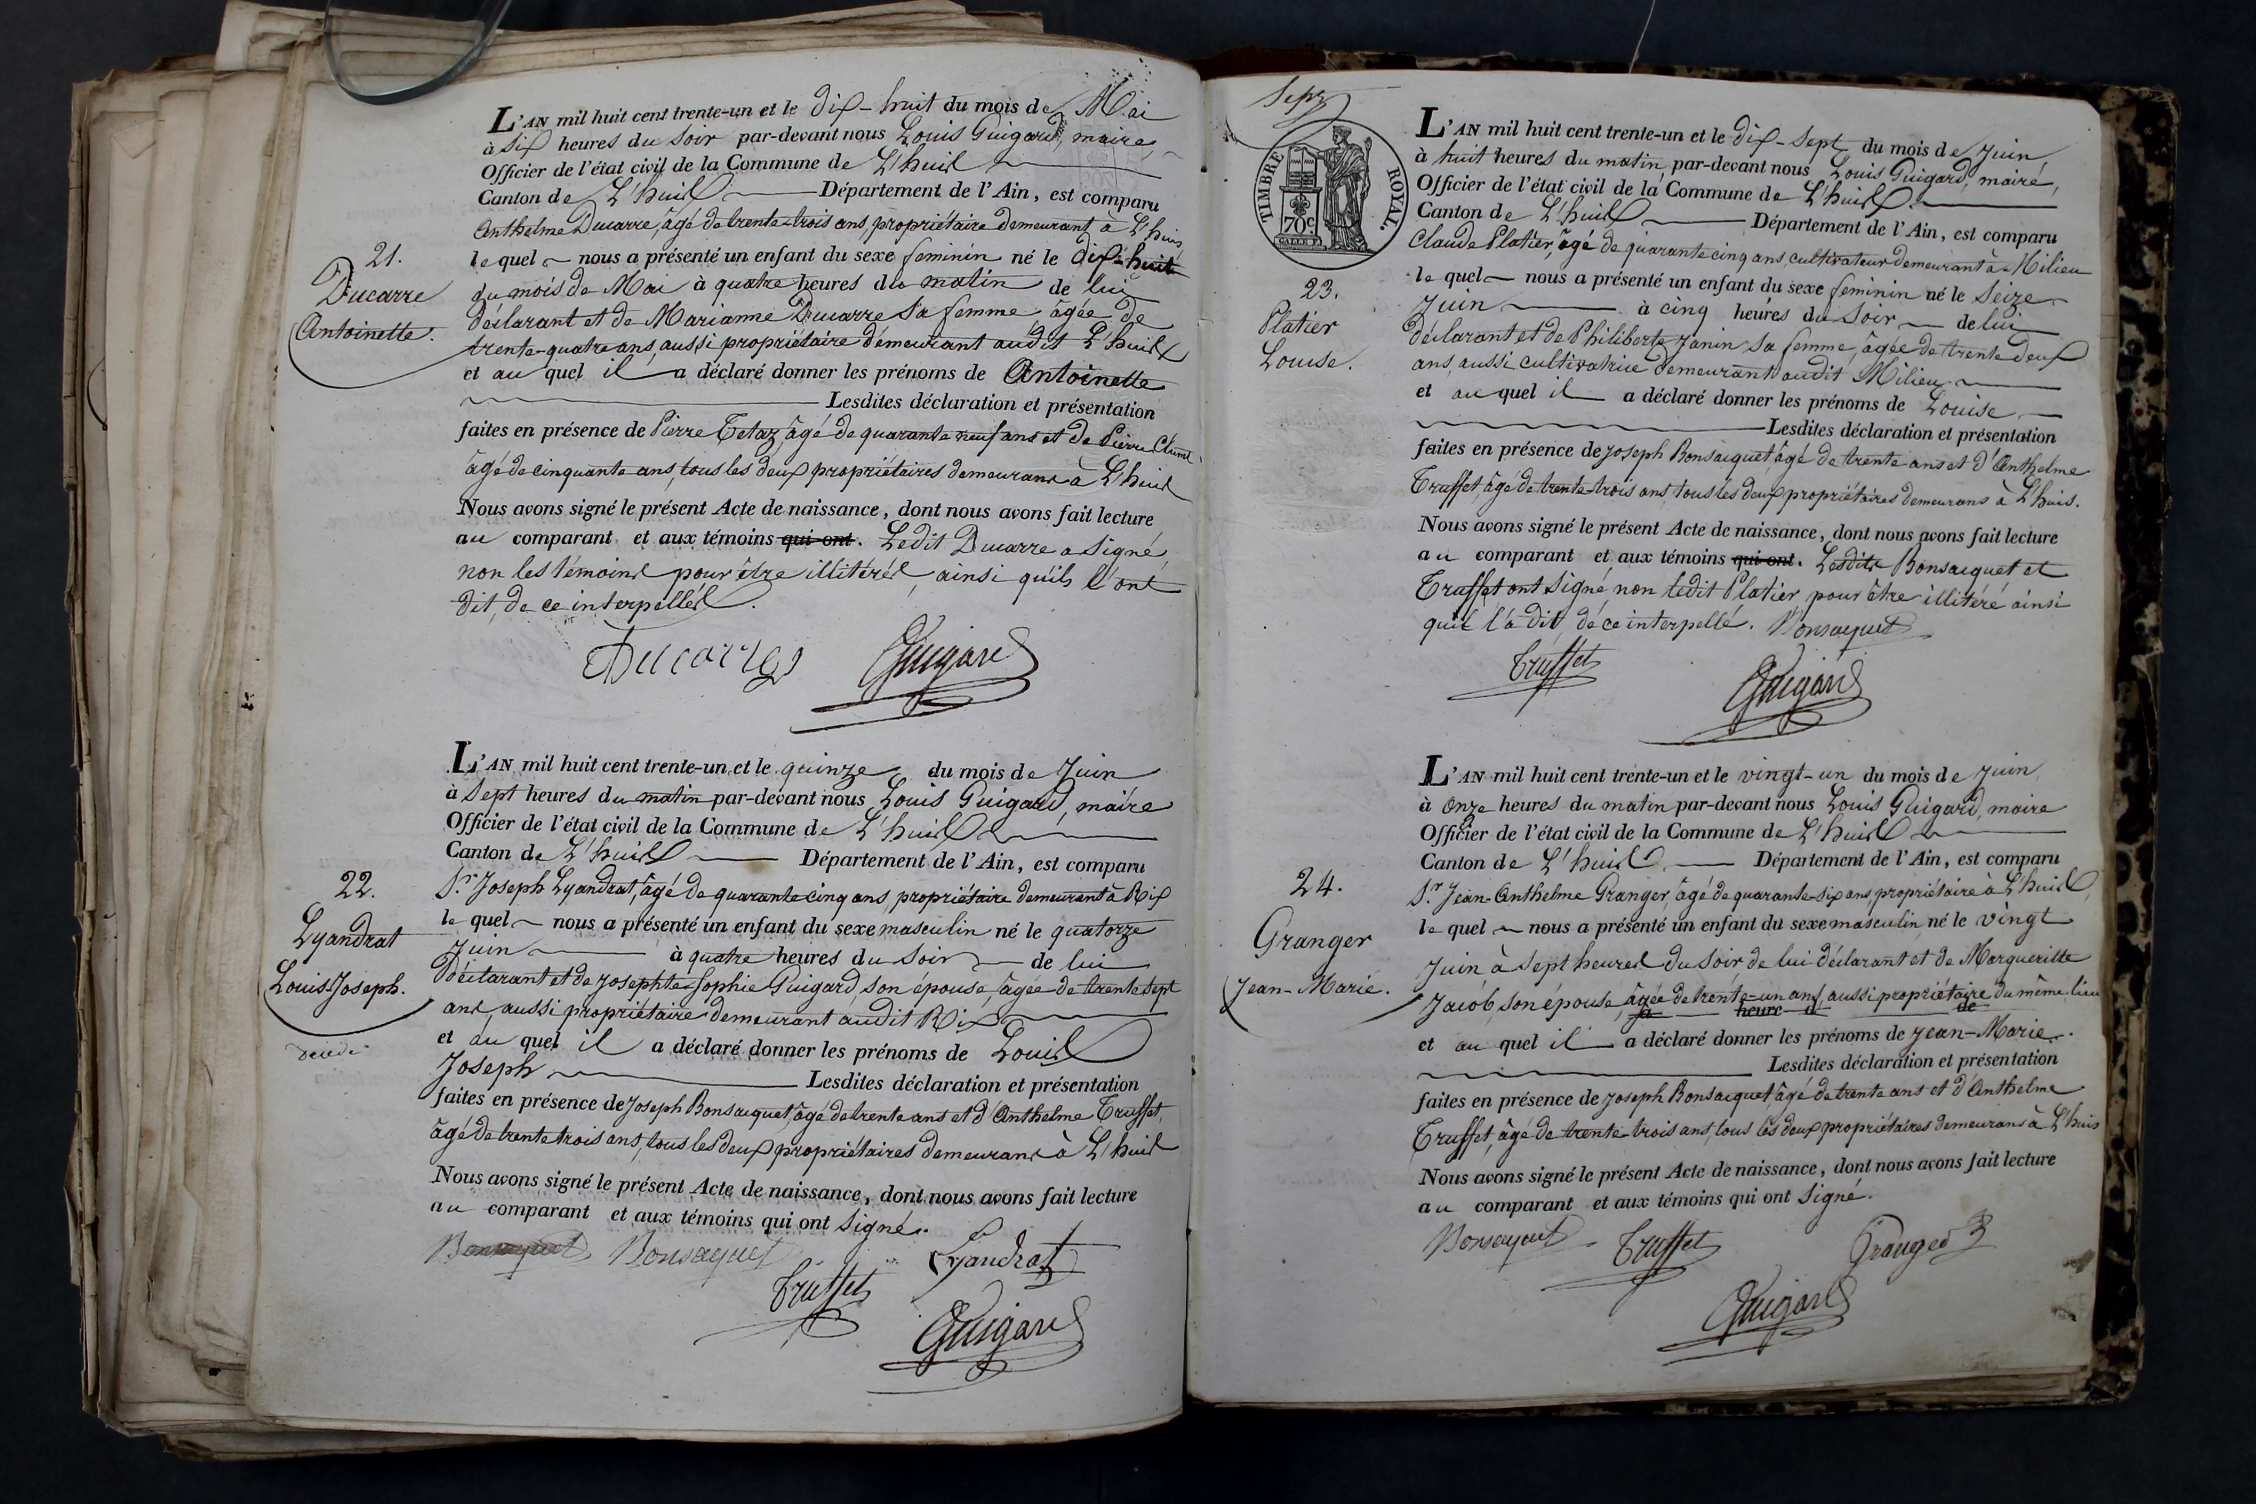 L'AN mil huit cent trente-un et le dix-huit du mois de Mai
à six heures du soir par-devant nous Louis Guigard, maire,
Officier de l'état civil de la Commune de L'huis
Canton de L'huis Département de l'Ain, est comparu
Anthelme Ducarre, âgé de trente-trois ans, propriétaire demeurant à L'huis
21.
Ducarre
Antoinette.
le quel nous a présenté un enfant du sexe feminin né le dix-huit
du mois de Mai à quatre heures du matin de lui
déclarant et de Marianne Ducarre sa femme âgée de
trente-quatre ans, aussi propriétaire demeurant audit L'huis
et au quel il a déclaré donner les prénoms de Antoinette
Lesdites déclaration et présentation
faites en présence de Pierre Tetaz âgé de quarante neuf ans et de Pierre
âgé de cinquante ans, tous les deux propriétaires demeurans à L'huis
Nous avons signé le présent Acte de naissance, dont nous avons fait lecture
au comparant et aux témoins qui ont. Ledit Ducarre a signé,
non les témoins pour être illitérés, ainsi qu'ils l'ont
dit, de ce interpellés.
Ducarre Guigard
L'AN mil huit cent trente-un et le quinze du mois de Juin
à sept heures du matin par-devant nous Louis Guigard, maire
Officier de l'état civil de la Commune de L'huis
Canton de L'huis Département de l'Ain, est comparu
Sr. Joseph Lyandrat, âgé de quarante cinq ans, propriétaire demeurant à Rix
22.
Lyandrat
Louis Joseph.
décédé
le quel nous a présenté un enfant du sexe masculin né le quatorze
Juin à quatre heures du soir de lui
déclarant et de Josephte-Sophie Guigard, son épouse, âgée de trente sept
ans, aussi propriétaire demeurant audit Rix
et au quel il a déclaré donner les prénoms de Louis
Joseph Lesdites déclaration et présentation
faites en présence de Joseph Bonsacquet, âgé de trente ans et d'Anthelme Truffet,
âgé de trente trois ans, tous les deux propriétaires demeurans à L'huis
Nous avons signé le présent Acte de naissance, dont nous avons fait lecture
au comparant et aux témoins qui ont signé.
Bonsacquet Lyandrat
Truffet
Guigard
Sept
TIMBRE ROYAL.
70c
L'AN mil huit cent trente-un et le dix-sept du mois de Juin,
à huit heures du matin, par-devant nous Louis Guigard, maire,
Officier de l'état civil de la Commune de L'huis
Canton de L'huis Département de l'Ain, est comparu
Claude Platier, âgé de quarante cinq ans, cultivateur demeurant à Milieu
23.
Platier
Louise.
le quel nous a présenté un enfant du sexe feminin né le seize
Juin à cinq heures du soir de lui
déclarant et de Philiberte Janin sa femme, âgée de trente deux
ans, aussi cultivatrice demeurant audit Milieu
et au quel il a déclaré donner les prénoms de Louise
Lesdites déclaration et présentation
faites en présence de Joseph Bonsacquet, âgé de trente ans et d'Anthelme
Truffet, âgé de trente-trois ans, tous les deux propriétaires demeurans à L'huis.
Nous avons signé le présent Acte de naissance, dont nous avons fait lecture
au comparant et aux témoins qui ont. Lesdits Bonsacquet et
Truffet ont signé non ledit Platier pour être illitéré ainsi
qu'il l'a dit, de ce interpellé. Bonsacquet
Truffet
Guigard
L'AN mil huit cent trente-un et le vingt-un du mois de Juin
à onze heures du matin par-devant nous Louis Guigard, maire
Officier de l'état civil de la Commune de L'huis
Canton de L'huis Département de l'Ain, est comparu
Sr. Jean-Anthelme Granger, âgé de quarante-six ans, propriétaire à L'huis,
24.
Granger
Jean-Marie.
le quel nous a présenté un enfant du sexe masculin né le vingt
Juin à sept heures du soir de lui déclarant et de Margueritte
Jacob, son épouse, âgée de trente-un ans, aussi propriétaire du même lieu
heure d de
et au quel il a déclaré donner les prénoms de Jean-Marie.
Lesdites déclaration et présentation
faites en présence de Joseph Bonsacquet âgé de trente ans et d'Anthelme
Truffet, âgé de trente-trois ans, tous les deux propriétaires demeurans à L'huis
Nous avons signé le présent Acte de naissance, dont nous avons fait lecture
au comparant et aux témoins qui ont signé.
Bonsacquet Truffet Granger
Guigard